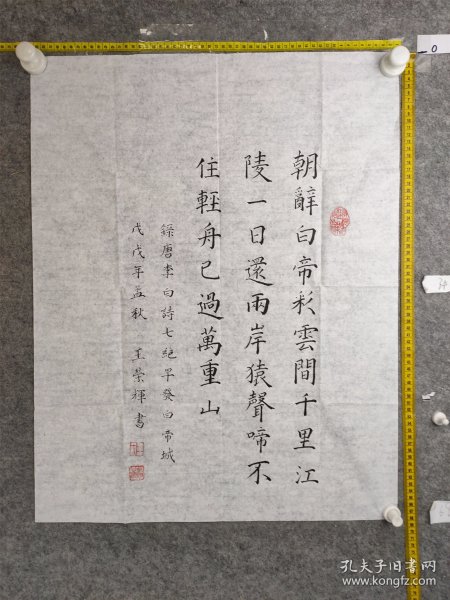 朝辭白帝彩雲間千里江
陵一日還兩岸猿聲啼不
住輕舟已過萬重山
錄唐李白詩七絕早發白帝城
戊戌年孟秋 王榮禪書
孔夫子旧书网
www.kongfz.com
0